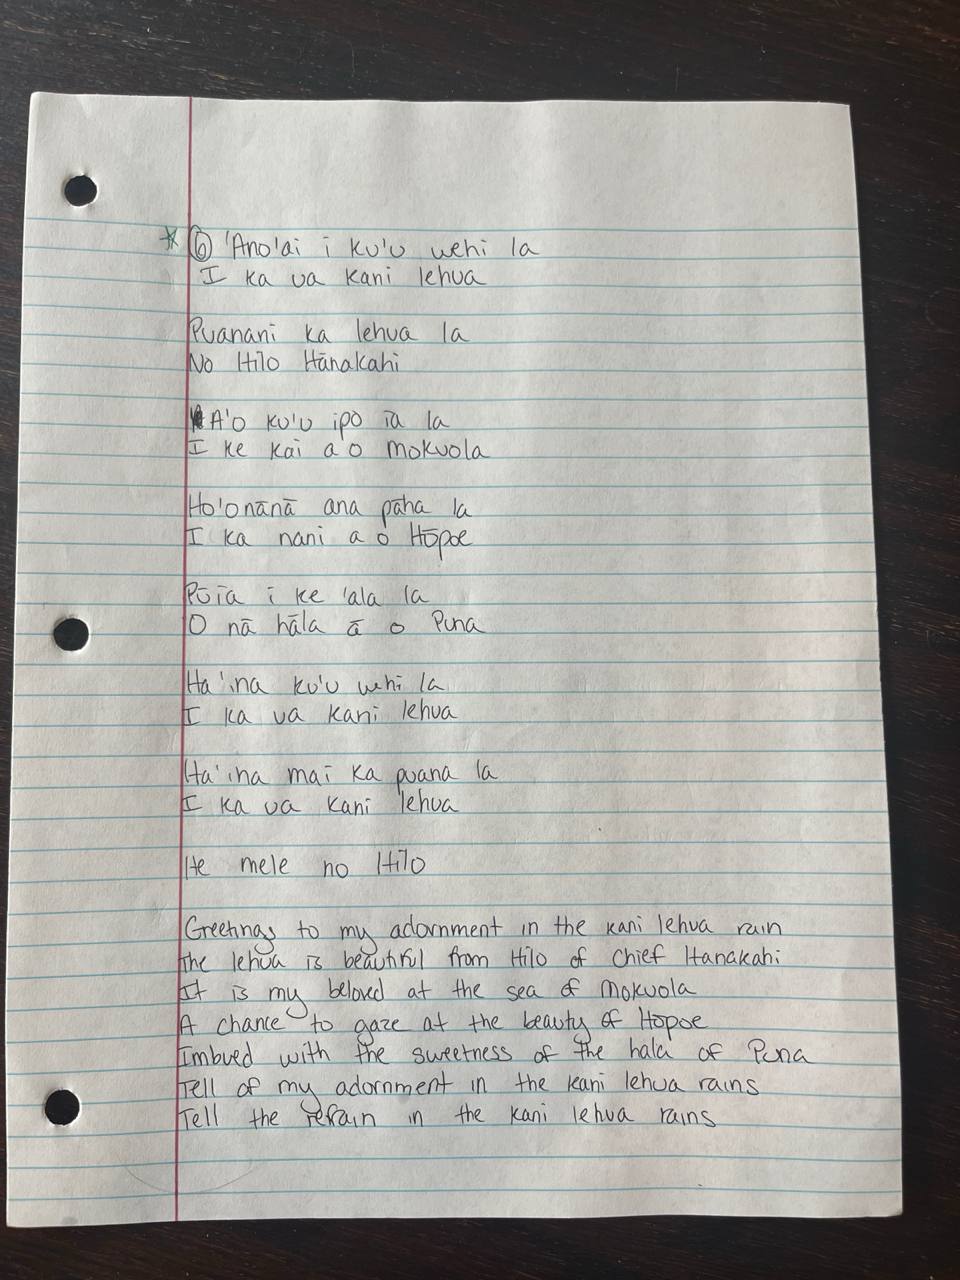 * ⑥ 'Ano'ai i ku'u wehi la
I ka ua kani lehua
Puanani ka lehua la
No Hilo Hānakahi
A'o ku'u ipo ia la
I ke kai a o mokuola
Ho'onānā ana pāha la
I ka nani a o Hōpoe
Pōīa i ke 'ala la
O nā hāla ā o Puna
Ha'ina ku'u wehi la
I ka ua kani lehua
Ha'ina mai ka puana la
I ka ua kani lehua
He mele no Hilo
Greetings to my adornment in the kani lehua rain
The lehua is beautiful from Hilo of Chief Hanakahi
It is my beloved at the sea of mokuola
A chance to gaze at the beauty of Hopoe
Imbued with the sweetness of the hala of Puna
Tell of my adornment in the kani lehua rains
Tell the refrain in the kani lehua rains